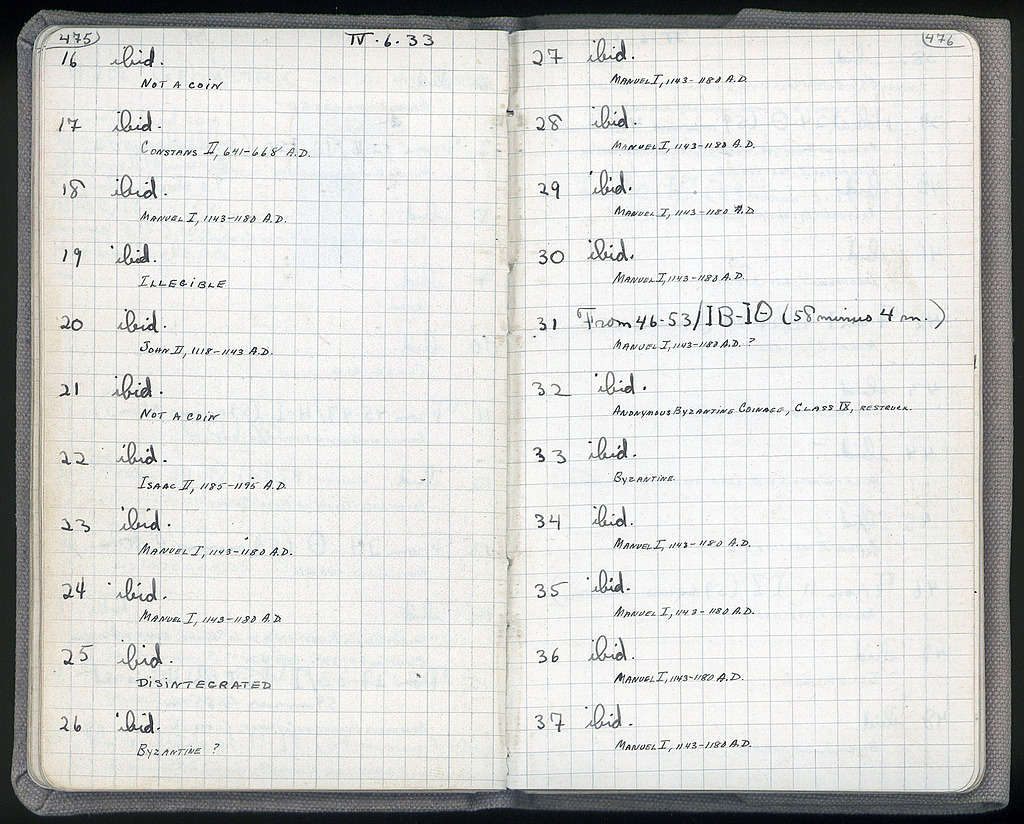 475
IV.6.33
16 ibid.
NOT A COIN
17 ibid.
CONSTANS II, 641-668 A.D.
18 ibid.
MANUEL I, 1143-1180 A.D.
19 ibid.
ILLEGIBLE
20 ibid.
JOHN II, 1118-1143 A.D.
21 ibid.
NOT A COIN
22 ibid.
ISAAC II, 1185-1195 A.D.
23 ibid.
MANUEL I, 1143-1180 A.D.
24 ibid.
MANUEL I, 1143-1180 A.D.
25 ibid.
DISINTEGRATED
26 ibid.
BYZANTINE ?
476
27 ibid.
MANUEL I, 1143-1180 A.D.
28 ibid.
MANUEL I, 1143-1180 A.D.
29 ibid.
MANUEL I, 1143-1180 A.D.
30 ibid.
MANUEL I, 1143-1180 A.D.
31 From 46-53/IB-IΘ (58 minus 4 m.)
MANUEL I, 1143-1180 A.D. ?
32 ibid.
ANONYMOUS BYZANTINE COINAGE, CLASS IX, RESTRUCK.
33 ibid.
BYZANTINE.
34 ibid.
MANUEL I, 1143-1180 A.D.
35 ibid.
MANUEL I, 1143-1180 A.D.
36 ibid.
MANUEL I, 1143-1180 A.D.
37 ibid.
MANUEL I, 1143-1180 A.D.